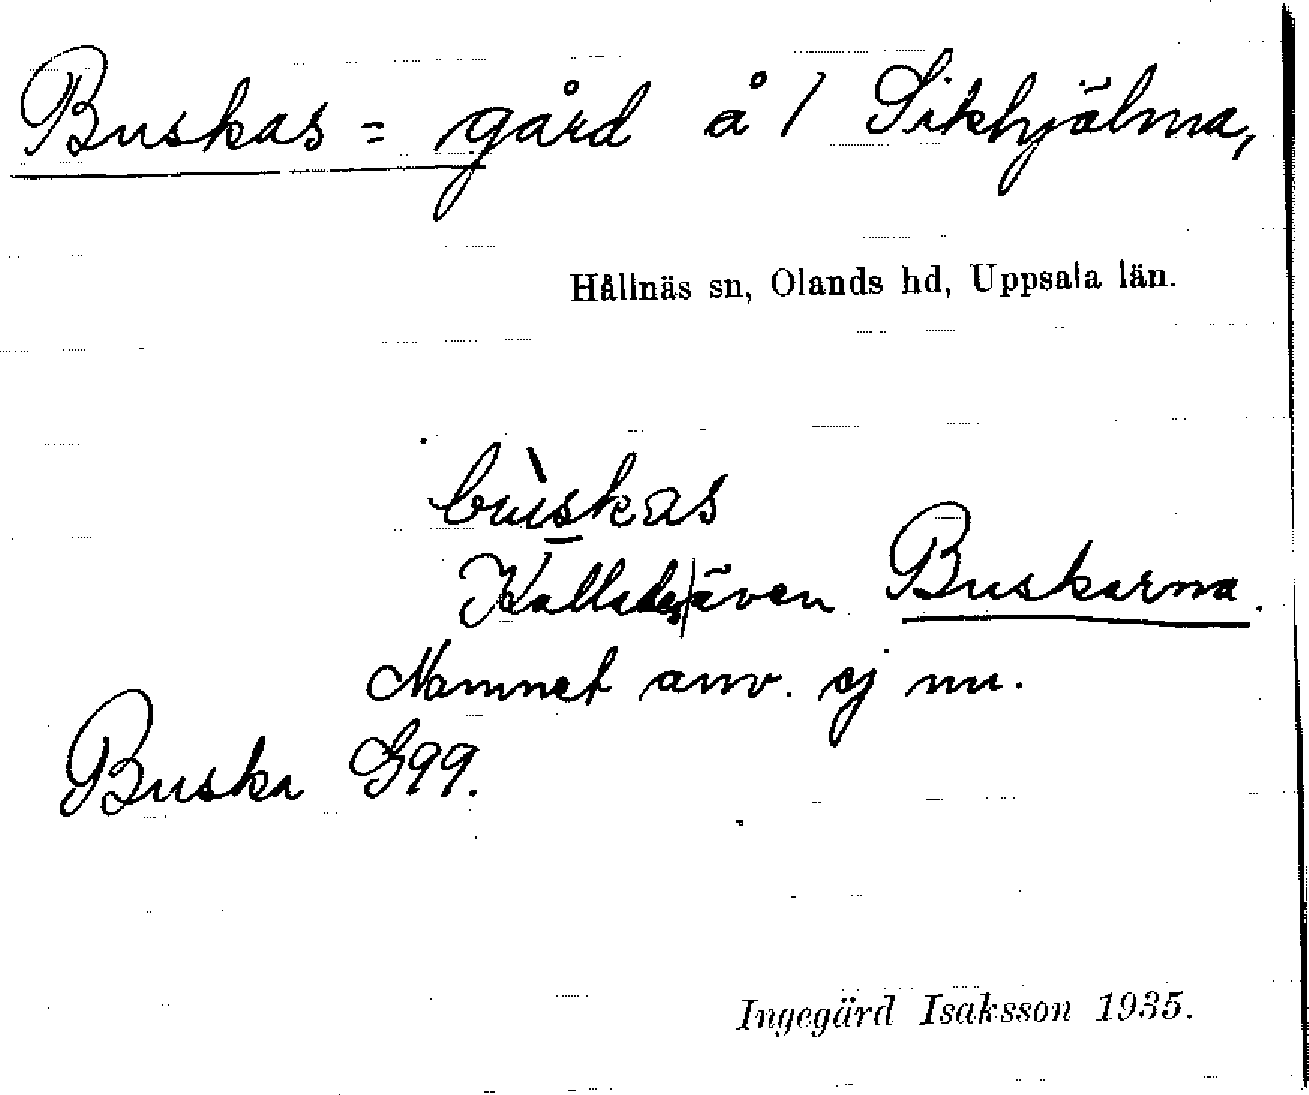 Buskas = gård å 1 Sikhjälma,
Hållnäs sn, Olands hd, Uppsala län.
bùskas
Kallades även Buskarna.
Namnet anv. ej nu.
Buska G99.
Ingegärd Isaksson 1935.